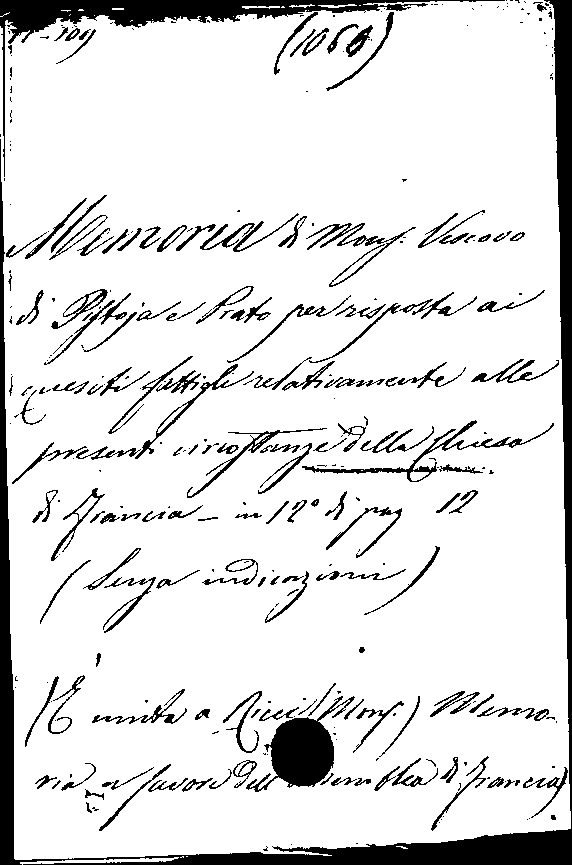 11-109
(1069)
Memoria di Mons. Vescovo
di Pistoja e Prato per risposta ai
quesiti fattigli relativamente alle
presenti circostanze della Chiesa
di Francia - in 12° di pag 12
(Senza indicazioni)
(È unita a Ricci (Mons.) Memo-
ria a favore dell'Assemblea di Francia)